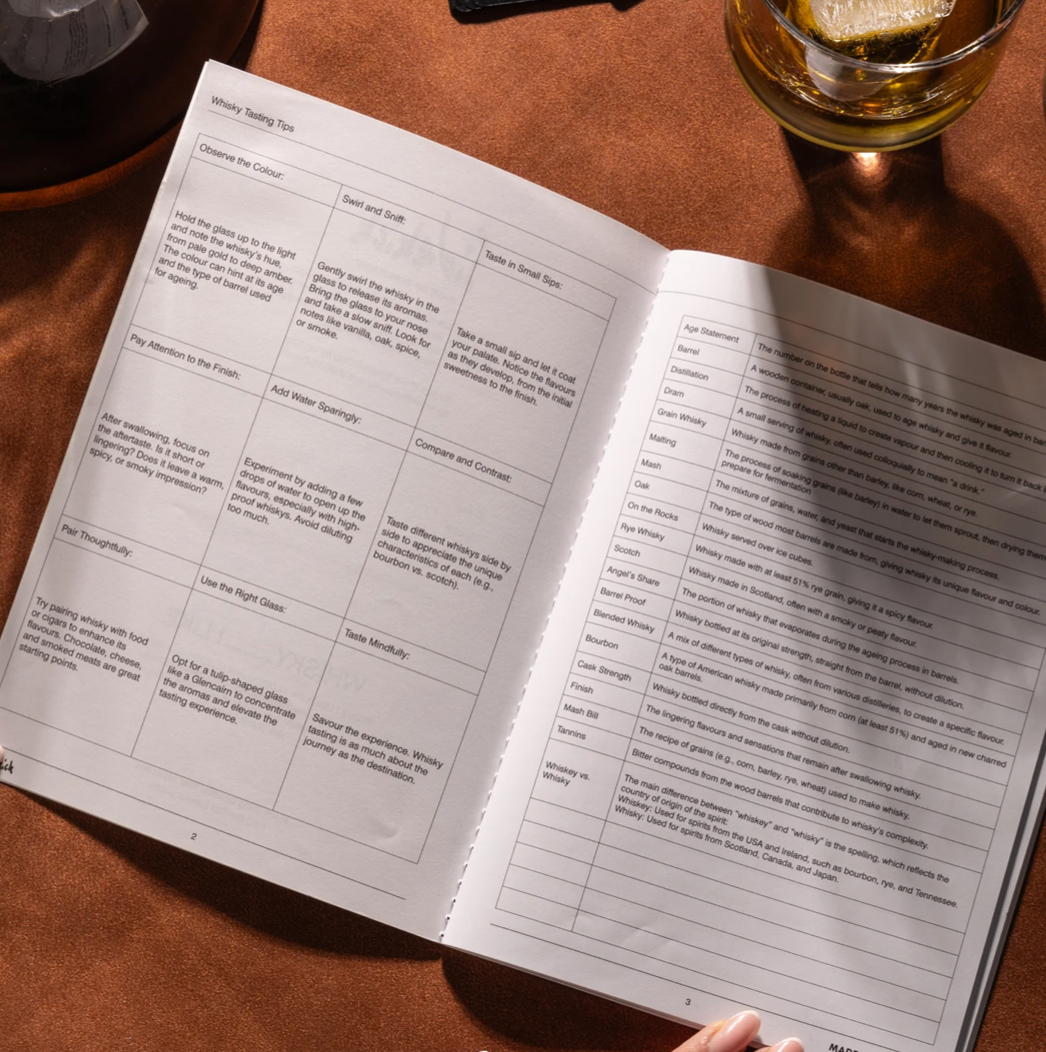 Whisky Tasting Tips
Observe the Colour:
Hold the glass up to the light
and note the whisky's hue,
from pale gold to deep amber.
The colour can hint at its age
and the type of barrel used
for ageing.
Swirl and Sniff:
Gently swirl the whisky in the
glass to release its aromas.
Bring the glass to your nose
and take a slow sniff. Look for
notes like vanilla, oak, spice,
or smoke.
Taste in Small Sips:
Take a small sip and let it coat
your palate. Notice the flavours
as they develop, from the initial
sweetness to the finish.
Pay Attention to the Finish:
After swallowing, focus on
the aftertaste. Is it short or
lingering? Does it leave a warm,
spicy, or smoky impression?
Add Water Sparingly:
Experiment by adding a few
drops of water to open up the
flavours, especially with high-
proof whiskys. Avoid diluting
too much.
Compare and Contrast:
Taste different whiskys side by
side to appreciate the unique
characteristics of each (e.g.,
bourbon vs. scotch).
Pair Thoughtfully:
Try pairing whisky with food
or cigars to enhance its
flavours. Chocolate, cheese,
and smoked meats are great
starting points.
Use the Right Glass:
Opt for a tulip-shaped glass
like a Glencairn to concentrate
the aromas and elevate the
tasting experience.
Taste Mindfully:
Savour the experience. Whisky
tasting is as much about the
journey as the destination.
2
Age Statement
The number on the bottle that tells how many years the whisky was aged in
Barrel
A wooden container, usually oak, used to age whisky and give it flavour.
Distillation
The process of heating a liquid to create vapour and then cooling it to turn it back
Dram
A small serving of whisky, often used colloquially to mean "a drink."
Grain Whisky
Whisky made from grains other than barley, like corn, wheat, or rye.
Malting
The process of soaking grains (like barley) in water to let them sprout, then drying them
prepare for fermentation
Mash
The mixture of grains, water, and yeast that starts the whisky-making process.
Oak
The type of wood most barrels are made from, giving whisky its unique flavour and colour.
On the Rocks
Whisky served over ice cubes.
Rye Whisky
Whisky made with at least 51% rye grain, giving it a spicy flavour.
Scotch
Whisky made in Scotland, often with a smoky or peaty flavour.
Angel's Share
The portion of whisky that evaporates during the ageing process in barrels.
Barrel Proof
Whisky bottled at its original strength, straight from the barrel, without dilution.
Blended Whisky
A mix of different types of whisky, often from various distilleries, to create a specific flavour.
Bourbon
A type of American whisky made primarily from corn (at least 51%) and aged in new charred
oak barrels.
Cask Strength
Whisky bottled directly from the cask without dilution.
Finish
The lingering flavours and sensations that remain after swallowing whisky.
Mash Bill
The recipe of grains (e.g., corn, barley, rye, wheat) used to make whisky.
Tannins
Bitter compounds from the wood barrels that contribute to whisky's complexity.
Whiskey vs.
Whisky
The main difference between "whiskey" and "whisky" is the spelling, which reflects the
country of origin of the spirit:
Whiskey: Used for spirits from the USA and Ireland, such as bourbon, rye, and Tennessee.
Whisky: Used for spirits from Scotland, Canada, and Japan.
3